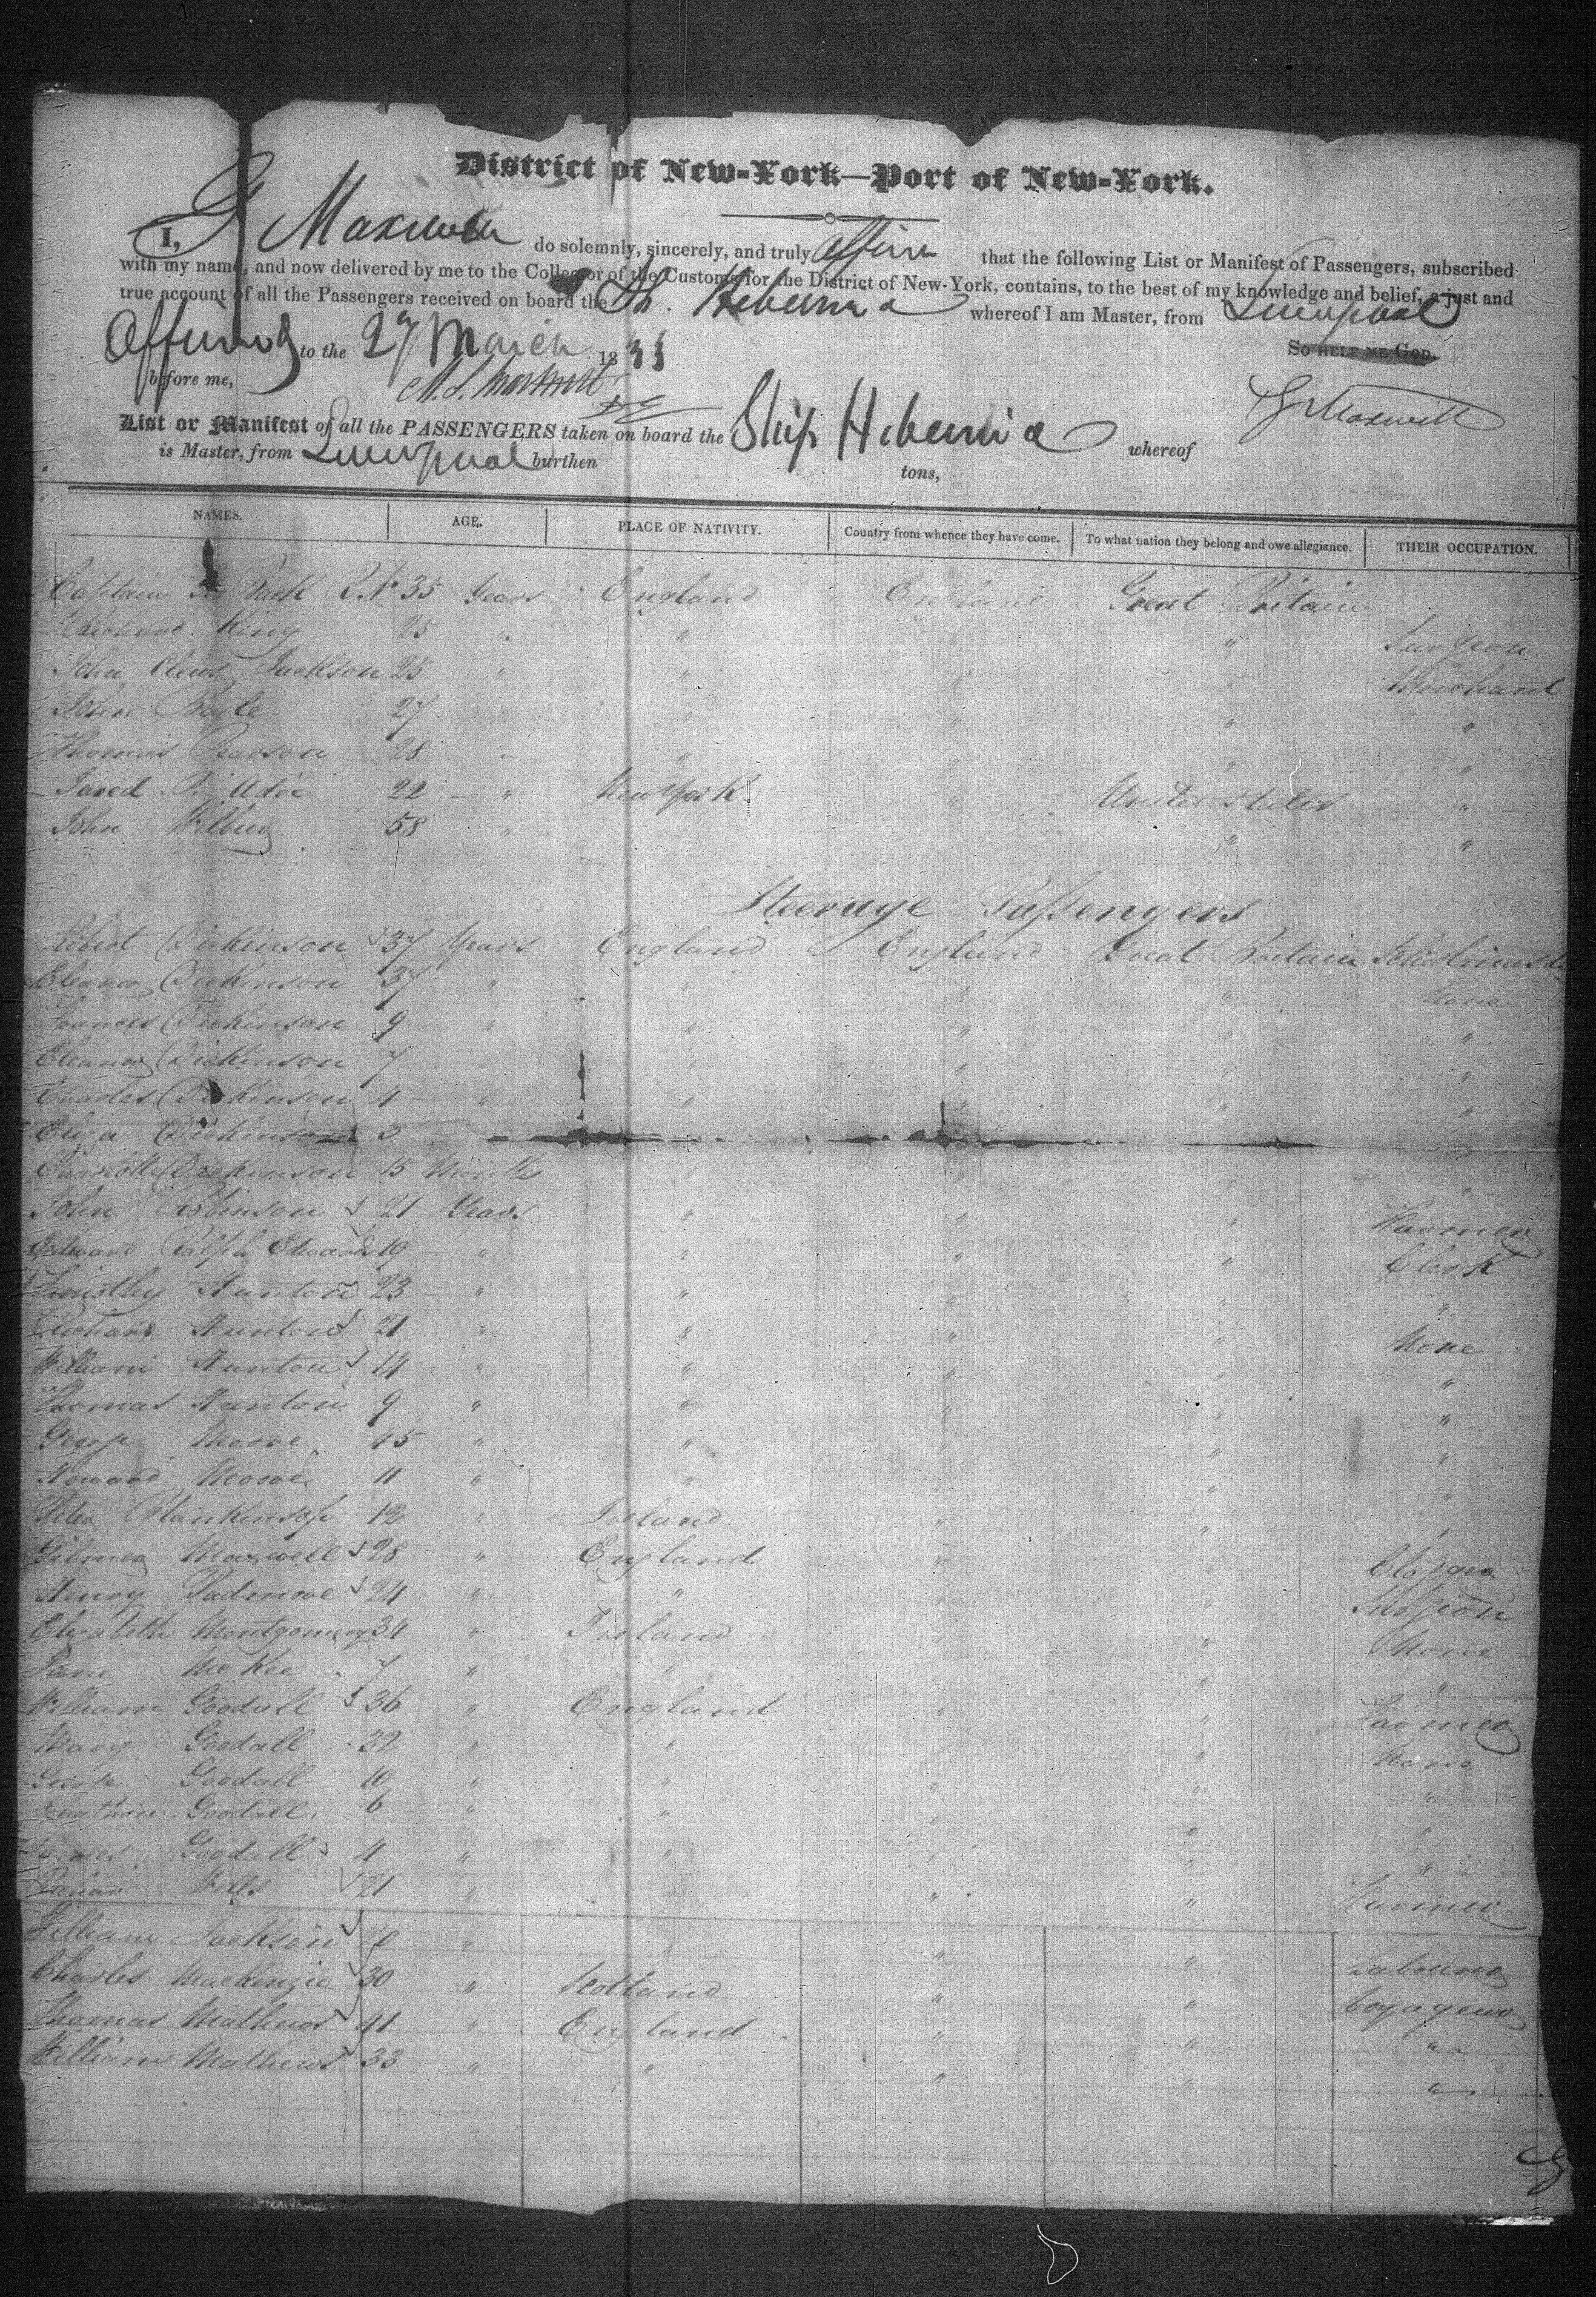 District of New-York—Port of New-York.
I, G Maxwell do solemnly, sincerely, and truly affirm that the following List or Manifest of Passengers, subscribed
with my name, and now delivered by me to the Collector of the Customs for the District of New-York, contains, to the best of my knowledge and belief, a just and
true account of all the Passengers received on board the Sh. Hibernia whereof I am Master, from Liverpool
Affirmed to the 27 March 1833 So help me God.
before me,
G Maxwell
List or Manifest of all the PASSENGERS taken on board the Ship Hibernia whereof
is Master, from Liverpool burthen tons,
NAMES. AGE. PLACE OF NATIVITY. Country from whence they have come. To what nation they belong and owe allegiance. THEIR OCCUPATION.
Captain Geo Back R.N 35 Years England England Great Britain
Richard King 25 " " " " Surgeon
John Clews Jackson 25 " " " " Merchant
John Boyle 27 " " " " "
Thomas Pearson 28 " " " " "
Jared P. Adee 22 " New York " United States "
John Wilbur 58 " " "
Steerage Passengers
Robert Dickinson 37 Years England England Great Britain Schoolmaster
Eleanor Dickinson 37 " " " " None
Frances Dickinson 9 " " " " "
Eleanor Dickinson 7 " " " " "
Charles Dickinson 4 " " " " "
Eliza Dickinson 3
Charlotte Dickinson 15 Months " " " "
John Robinson 21 Years " " " Farmer
Edward Ralph Edwards 19 " " " " Clerk
Timothy Hunton 23 " " " " "
Richard Hunton 21 " " " " None
William Hunton 14 " " " " "
Thomas Hunton 9 " " " " "
George Moore 45 " " " " "
Howard Moore 11 " " " " "
Peter Blankinsop 12 " Ireland " " "
Gilmer Maxwell 28 " England " " Clogger
Henry Padmore 24 " " " " Surgeon
Elizabeth Montgomery 34 " Ireland " " None
Jane McKee 7 " " " " "
William Goodall 36 " England " " Farmer
Mary Goodall 32 " " " " None
George Goodall 10 " " " " "
Jonathan Goodall 6 " " " " "
James Goodall 4 " " " " "
Richard Wells 21 " " " " Farmer
William Jackson 20 " " " " Labourer
Charles Mackenzie 30 " Scotland " " Voyageur
Thomas Mathews 41 " England " " "
William Mathews 33 " " " " "